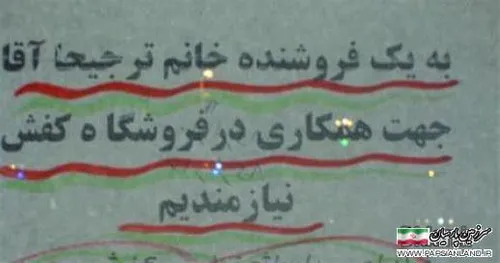 به یک فروشنده خانم ترجیحا آقا
جهت همکاری در فروشگاه کفش
نیازمندیم
سرزمین پارسیان
WWW.PARSIANLAND.IR